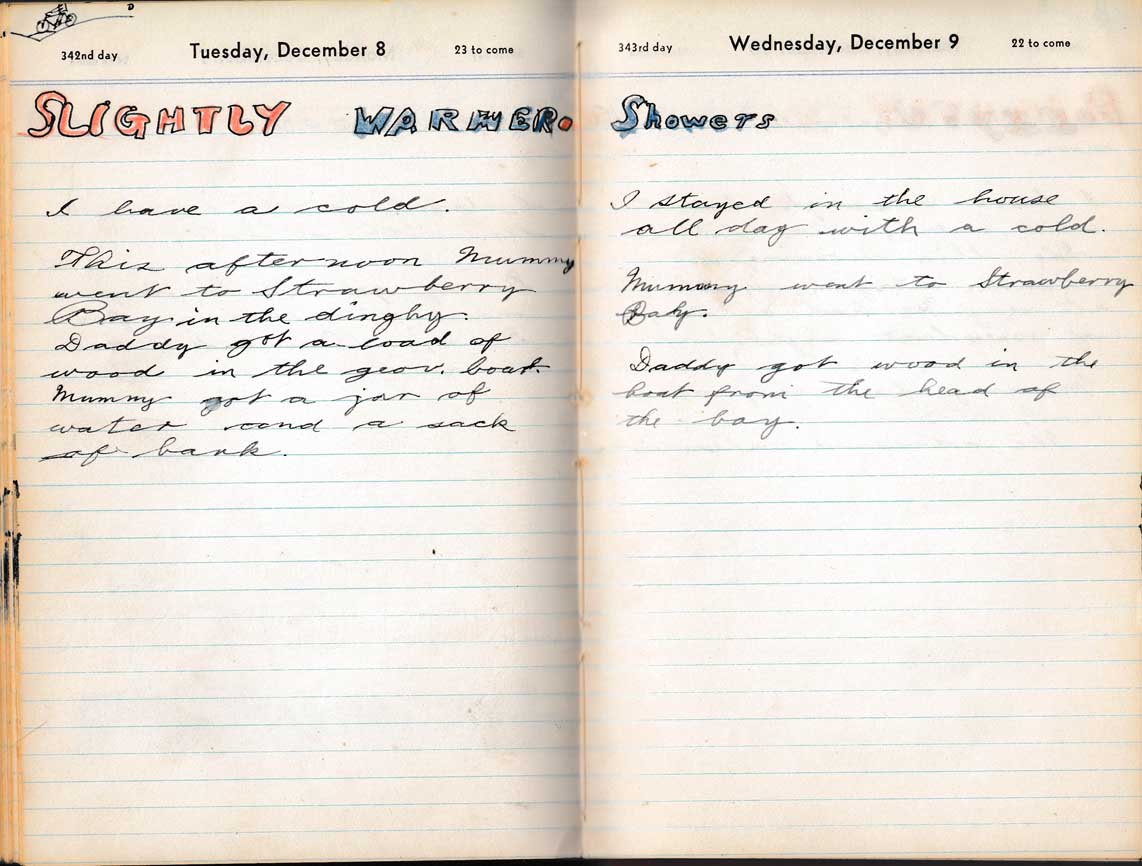 342nd day Tuesday, December 8 23 to come
SLIGHTLY WARMER.
I have a cold.
This afternoon Mummy
went to Strawberry
Bay in the dinghy.
Daddy got a load of
wood in the gov. boat.
Mummy got a jar of
water and a sack
of bark.
343rd day Wednesday, December 9 22 to come
Showers
I stayed in the house
all day with a cold.
Mummy went to Strawberry
Bay.
Daddy got wood in the
boat from the head of
the bay.